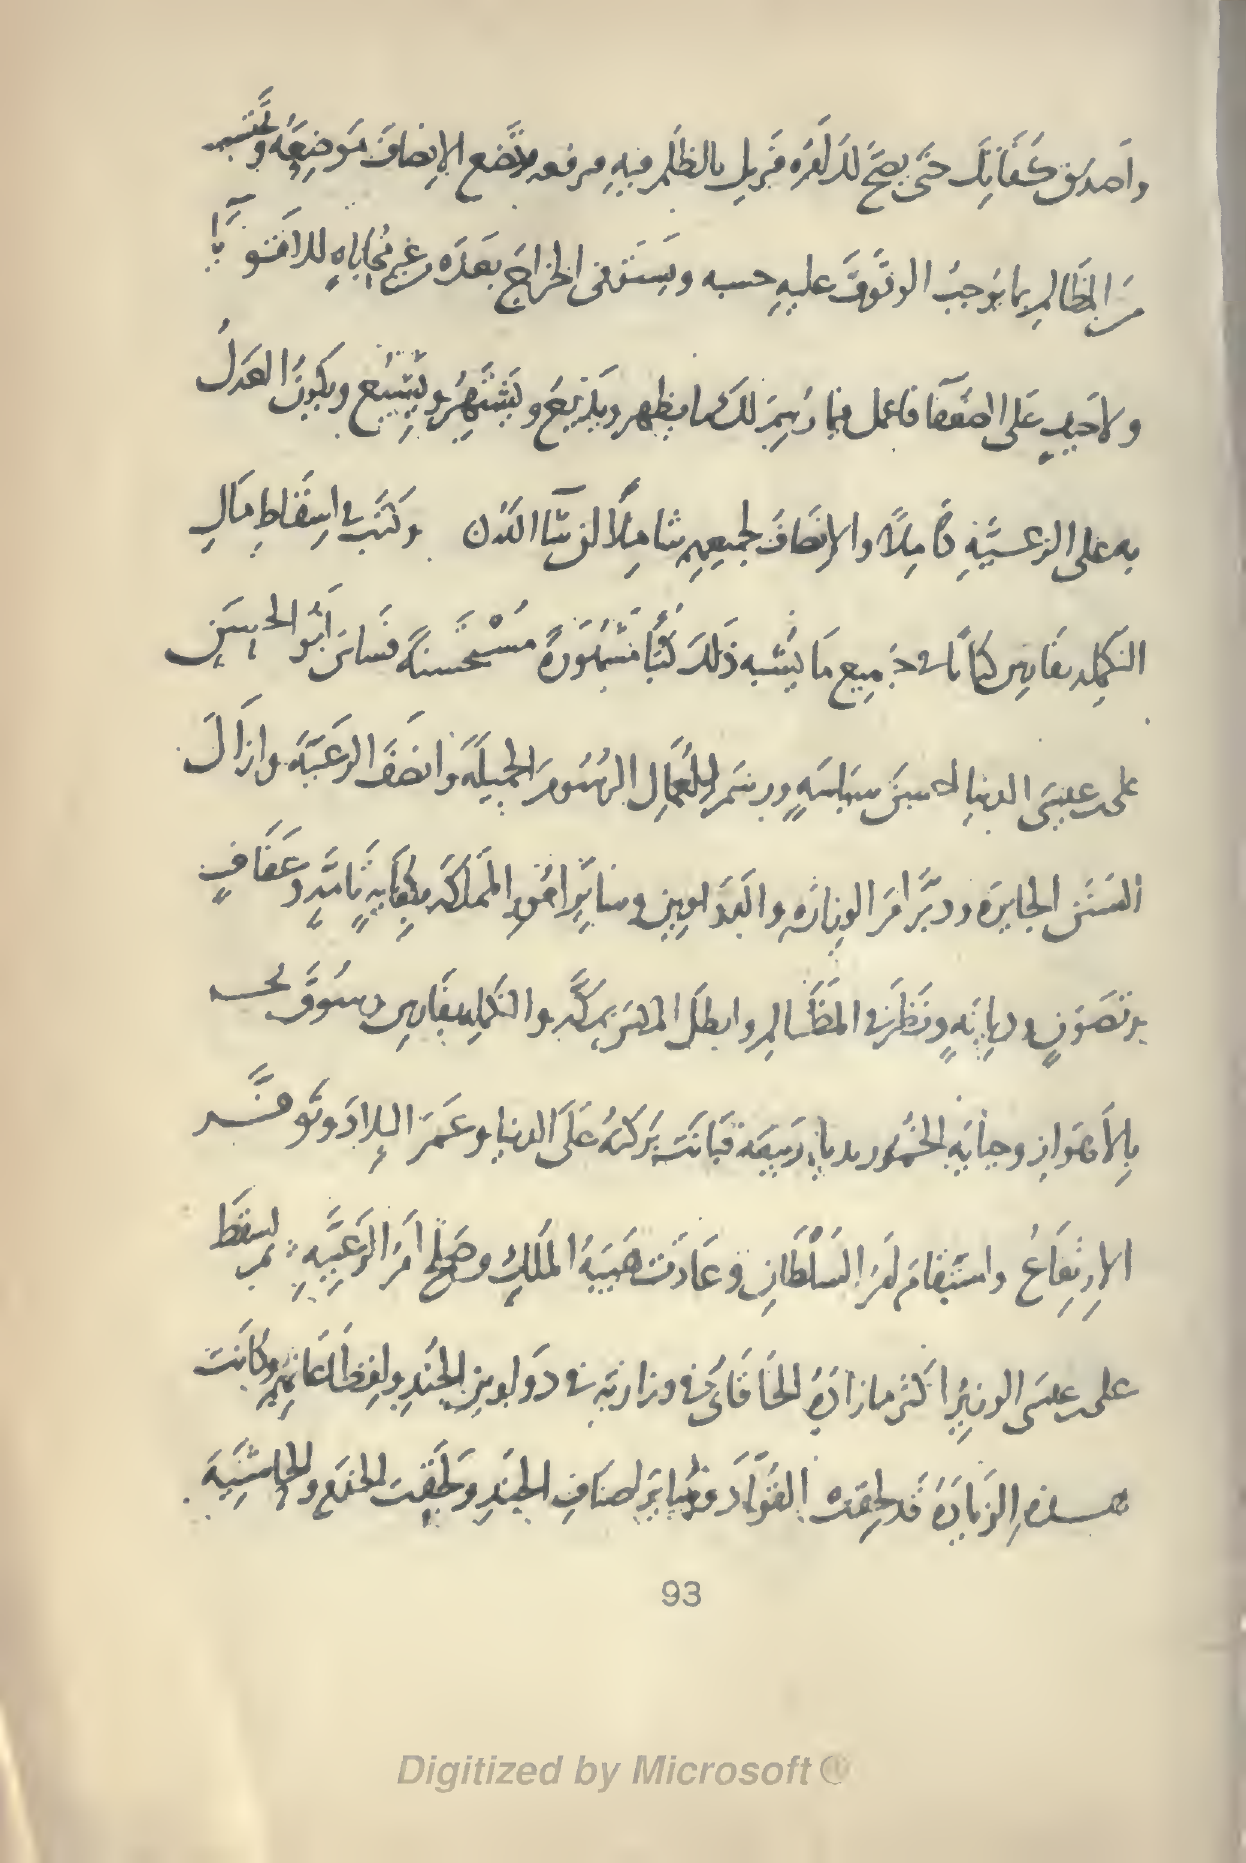 واصدق كفاتك حتى يصح لك امره فتزيل بالظلم فيه مرفعه وتضع الانصاف موضعه وتحتسب
من المظالم بما يوجب الوقوف عليه حسبه ويستوفى الخراج بعده من غير محاباه للاقويآء
ولا حيف على الضعفآ فاعمل فيما رسم لك ما يظهر ويذيع ويشتهر ويشيع ويكون العدل
به على الرعيّةِ كاملاً والانصاف لجميعهم شاملاً ان شآ الله وكتب فى اسقاط مال
التكمله بفارس كتابا فى جميع ما يشبه ذلك كتبًا مشهورةً مستحسنة فساس ابو الحسن
على بن عيسى الدنيا احسن سياسه ورسم للعمال الرسوم الجميلة وانصف الرعية وازال
السنن الجايرة ودبّر امر الوزاره والدواوين وساير امور المملكه بكفايه تامّه وعفاف
وتصون وديانه ونظر فى المظالم وابطل المكس بمكّه والتكمله بفارس وسوق بحر
بالاهواز وجبايه الخمور بديار ربيعة فبانت بركته على الدنيا وعمر البلاد وتوفّر
الارتفاع واستقام امر السلطان وعادت هيبة الملك وصلح امر الرعيّه ثم اسقط
على بن عيسى الوزير اكثر ما زاده الخاقانى فى وزارته فى دواوين الجند وانظار غانهم وكانت
هذه الزيادة قد لحقت القوّاد وساير اصناف الجند ولحقت الخدم والحاشية
93
Digitized by Microsoft ®